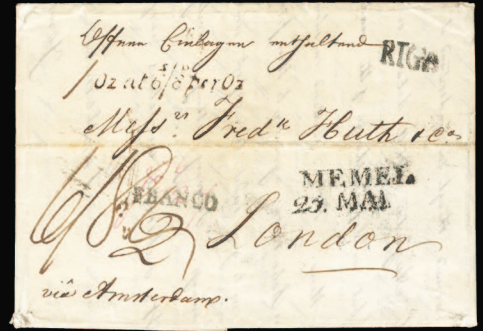 Offene Einlagen enthaltend
RIGA
1 oz at 6/8 per oz
Messrs. Fredk Huth & Co
FRANCO
MEMEL
25. MAI
London
via Amsterdam.